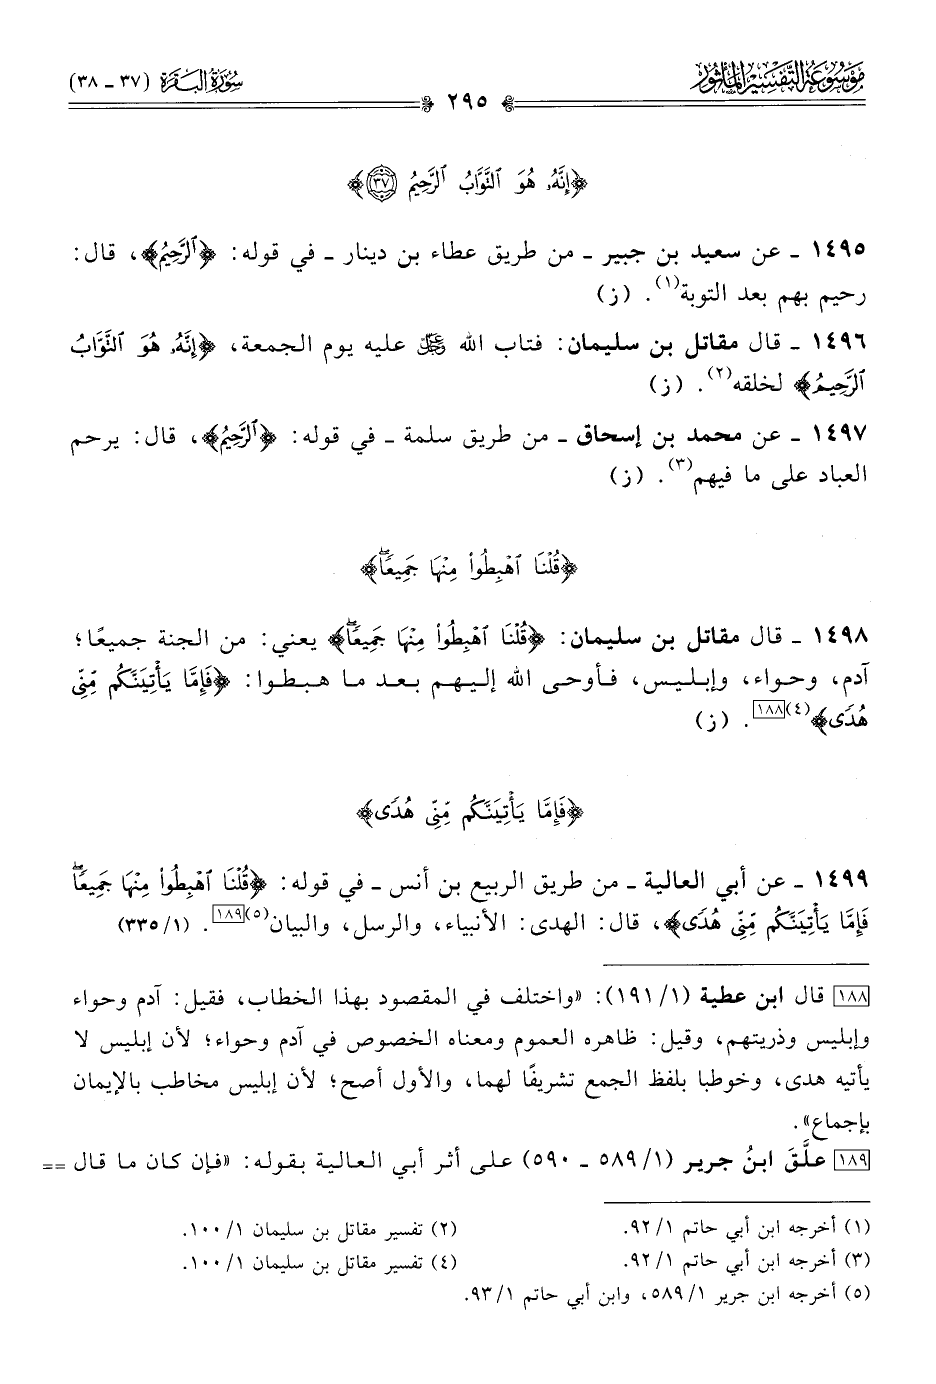 موسوعة التفسير المأثور
سورة البقرة (٣٧ - ٣٨)
٢٩٥
﴿إِنَّهُۥ هُوَ ٱلتَّوَّابُ ٱلرَّحِيمُ ۝٣٧﴾
١٤٩٥ - عن سعيد بن جبير - من طريق عطاء بن دينار - في قوله: ﴿ٱلرَّحِيمُ﴾، قال:
رحيم بهم بعد التوبة(١). (ز)
١٤٩٦ - قال مقاتل بن سليمان: فتاب الله عز وجل عليه يوم الجمعة، ﴿إِنَّهُۥ هُوَ ٱلتَّوَّابُ
ٱلرَّحِيمُ﴾ لخلقه(٢). (ز)
١٤٩٧ - عن محمد بن إسحاق - من طريق سلمة - في قوله: ﴿ٱلرَّحِيمُ﴾، قال: يرحم
العباد على ما فيهم(٣). (ز)
﴿قُلْنَا ٱهْبِطُوا۟ مِنْهَا جَمِيعًاۖ﴾
١٤٩٨ - قال مقاتل بن سليمان: ﴿قُلْنَا ٱهْبِطُوا۟ مِنْهَا جَمِيعًاۖ﴾ يعني: من الجنة جميعًا؛
آدم، وحواء، وإبليس، فأوحى الله إليهم بعد ما هبطوا: ﴿فَإِمَّا يَأْتِيَنَّكُم مِّنِّى
هُدًى﴾(٤)[١٨٨]. (ز)
﴿فَإِمَّا يَأْتِيَنَّكُم مِّنِّى هُدًى﴾
١٤٩٩ - عن أبي العالية - من طريق الربيع بن أنس - في قوله: ﴿قُلْنَا ٱهْبِطُوا۟ مِنْهَا جَمِيعًاۖ
فَإِمَّا يَأْتِيَنَّكُم مِّنِّى هُدًى﴾، قال: الهدى: الأنبياء، والرسل، والبيان(٥)[١٨٩]. (١/ ٣٣٥)
[١٨٨] قال ابن عطية (١/ ١٩١): «واختلف في المقصود بهذا الخطاب، فقيل: آدم وحواء
وإبليس وذريتهم، وقيل: ظاهره العموم ومعناه الخصوص في آدم وحواء؛ لأن إبليس لا
يأتيه هدى، وخوطبا بلفظ الجمع تشريفًا لهما، والأول أصح؛ لأن إبليس مخاطب بالإيمان
بإجماع».
[١٨٩] علَّقَ ابنُ جرير (١/ ٥٨٩ - ٥٩٠) على أثر أبي العالية بقوله: «فإن كان ما قال ==
(١) أخرجه ابن أبي حاتم ١/ ٩٢. (٢) تفسير مقاتل بن سليمان ١/ ١٠٠.
(٣) أخرجه ابن أبي حاتم ١/ ٩٢. (٤) تفسير مقاتل بن سليمان ١/ ١٠٠.
(٥) أخرجه ابن جرير ١/ ٥٨٩، وابن أبي حاتم ١/ ٩٣.